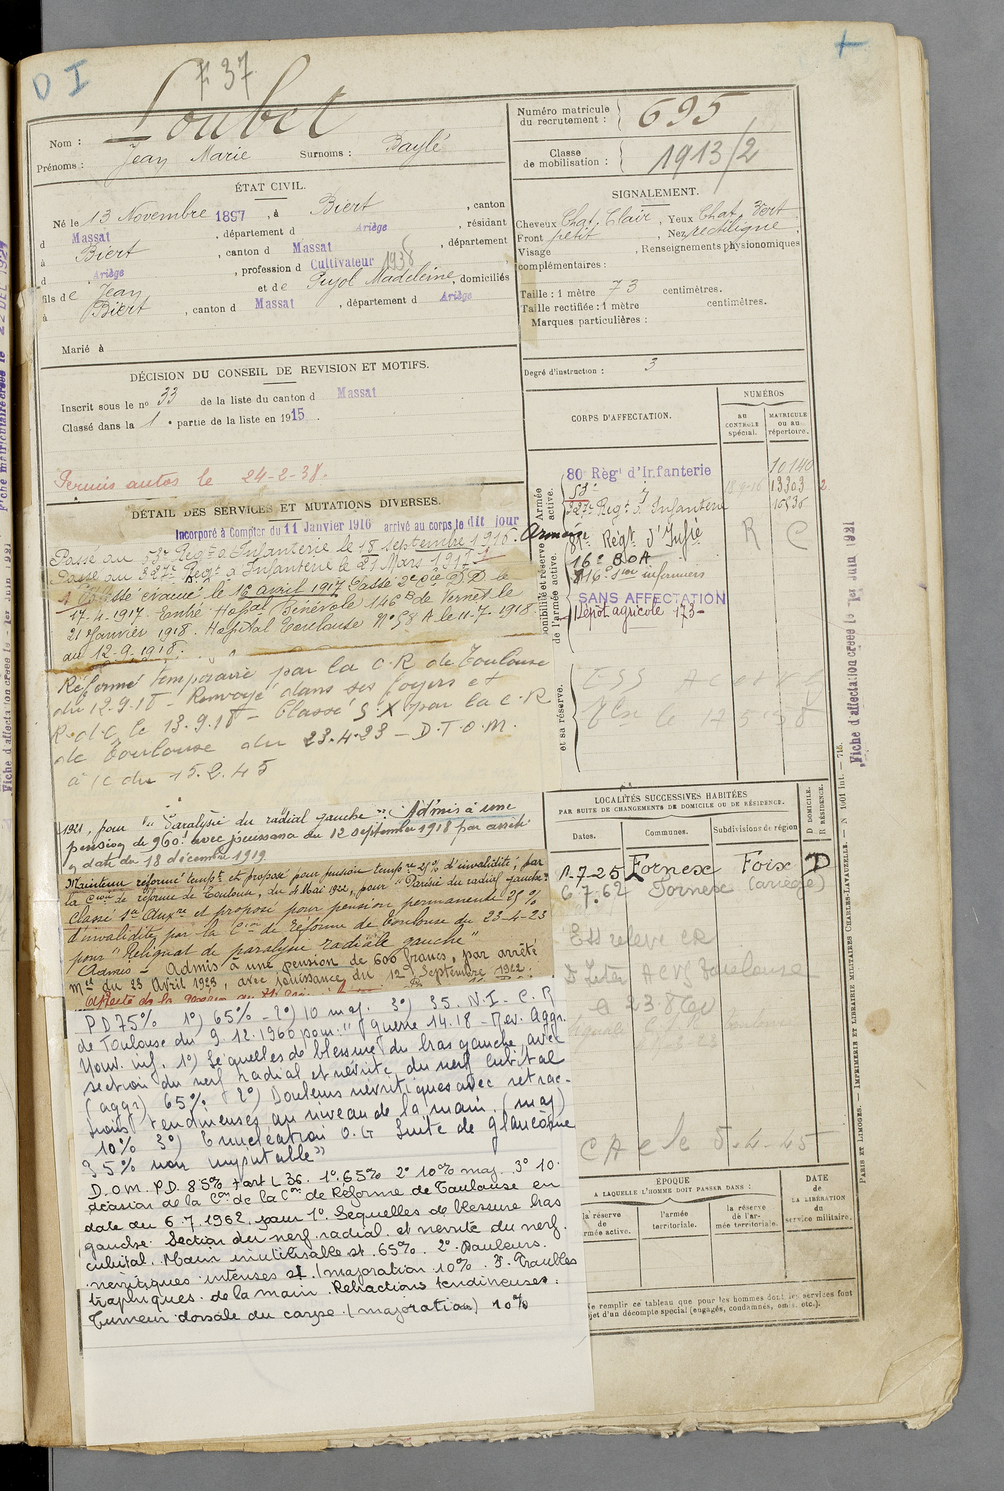 D I
737
+
Nom : Loubet
Prénoms : Jean Marie Surnoms : Baylé
Numéro matricule du recrutement : 695
Classe de mobilisation : 1913/2
ÉTAT CIVIL.
Né le 13 Novembre 1897, à Biert, canton
d Massat, département d Ariège, résidant
à Biert, canton d Massat, département
d Ariège, profession d Cultivateur 1938
fils de Jean et de Pujol Madeleine, domiciliés
à Biert, canton d Massat, département d Ariège
Marié à
SIGNALEMENT.
Cheveux Chat. Clair, Yeux Chat. Vert
Front petit, Nez rectiligne
Visage , Renseignements physionomiques
complémentaires :
Taille : 1 mètre 73 centimètres.
Taille rectifiée : 1 mètre centimètres.
Marques particulières :
Degré d'instruction : 3
DÉCISION DU CONSEIL DE REVISION ET MOTIFS.
Inscrit sous le no 33 de la liste du canton d Massat
Classé dans la 1e partie de la liste en 1915.
Permis autos le 24-2-38.
DÉTAIL DES SERVICES ET MUTATIONS DIVERSES.
Incorporé à Compter du 11 Janvier 1916 arrivé au corps le dit jour
Passé au 53e Regt d'Infanterie le 18 septembre 1916.
Passé au 327e Regt d'Infanterie le 21 Mars 1917
Blessé évacué le 16 avril 1917 Passé DD le
17.4.1917. Entré Hopital Bénévole 146 de Vernet le
21 Janvier 1918. Hopital Toulouse No 58 A le 11-7-1918
au 12-9-1918.
Réformé temporaire par la C.R de Toulouse
du 12.9.18 - Renvoyé dans ses foyers et
R.d.C. le 13.9.18 - Classé S X par la C.R
de Toulouse du 23.4.23 - D.T.O.M.
à /c du 15.2.45
1921, pour "Paralysie du radial gauche". Admis à une
pension de 960f avec jouissance du 12 septembre 1918 par arrêté
en date du 18 décembre 1919
Maintenu réformé tempre et proposé pour pension tempre 25% d'invalidité, par
la Cion de réforme de Toulouse, du 4 Mai 1922, pour "Parésie du radial gauche"
Classé Sce Auxre et proposé pour pension permanente 25%
d'invalidité par la Cion de réforme de Toulouse du 23-4-23
pour "Reliquat de paralysie radiale gauche"
Admis - Admis à une pension de 600 francs, par arrêté
Mel du 23 Avril 1923, avec jouissance du 12 Septembre 1922.
PD 75% 1°) 65% - 2°) 10 maj. 3°) 35. N.I - C.R
de Toulouse du 9.12.1960 pour : "guerre 14.18 - Rev. Aggr.
Nouv. inf. 1°) Séquelles de blessure du bras gauche avec
section du nerf radial et névrite du nerf cubital
(aggr) 65% 2°) Douleurs névritiques avec rétrac-
tions tendineuses au niveau de la main. (maj)
10% 3°) Enucléation O.G Suite de glaucome
35% non imputable"
D.O.M. P.D. 85% + art L 36. 1° 65% 2° 10% maj. 3° 10.
décision de la Con de la Con de Réforme de Toulouse en
date du 6.7.1962. pour 1°. Séquelles de blessure bras
gauche. Section du nerf radial et névrite du nerf.
cubital. Main inutilisable st. 65%. 2°. Douleurs.
névritiques intenses st. (majoration 10%. 3°. Troubles
trophiques de la main. Rétractions tendineuses.
Tumeur dorsale du carpe. (majoration) 10%
CORPS D'AFFECTATION.
NUMÉROS
AU CONTROLE spécial.
MATRICULE OU AU répertoire.
Armée active.
80e Régt d'Infanterie 10140
53e 18-9-16 13303
327e Regt d'Infanterie 10536
Disponibilité et réserve de l'armée active.
81e Régt d'Infie R C
16e B O A
16e Son infirmiers
SANS AFFECTATION
Dépôt agricole 173-
et sa réserve.
LOCALITÉS SUCCESSIVES HABITÉES
PAR SUITE DE CHANGEMENTS DE DOMICILE OU DE RÉSIDENCE.
Dates. Communes. Subdivisions de région
D DOMICILE.
R RÉSIDENCE.
11-7-25 Fornex Foix D
6.7.62 Fornex (ariège)
Ets relevé CR
ACVG Toulouse
C A C le 5.4.45
ÉPOQUE
A LAQUELLE L'HOMME DOIT PASSER DANS :
la réserve de l'armée active.
l'armée territoriale.
la réserve de l'armée territoriale.
DATE de LA LIBÉRATION du service militaire.
Ne remplir ce tableau que pour les hommes dont les services font
l'objet d'un décompte spécial (engagés, condamnés, omis, etc.).
Fiche d'affectation créée le 1er Juin 1921
PARIS ET LIMOGES. — IMPRIMERIE ET LIBRAIRIE MILITAIRES CHARLES-LAVAUZELLE. — N 1601 int. — 715.